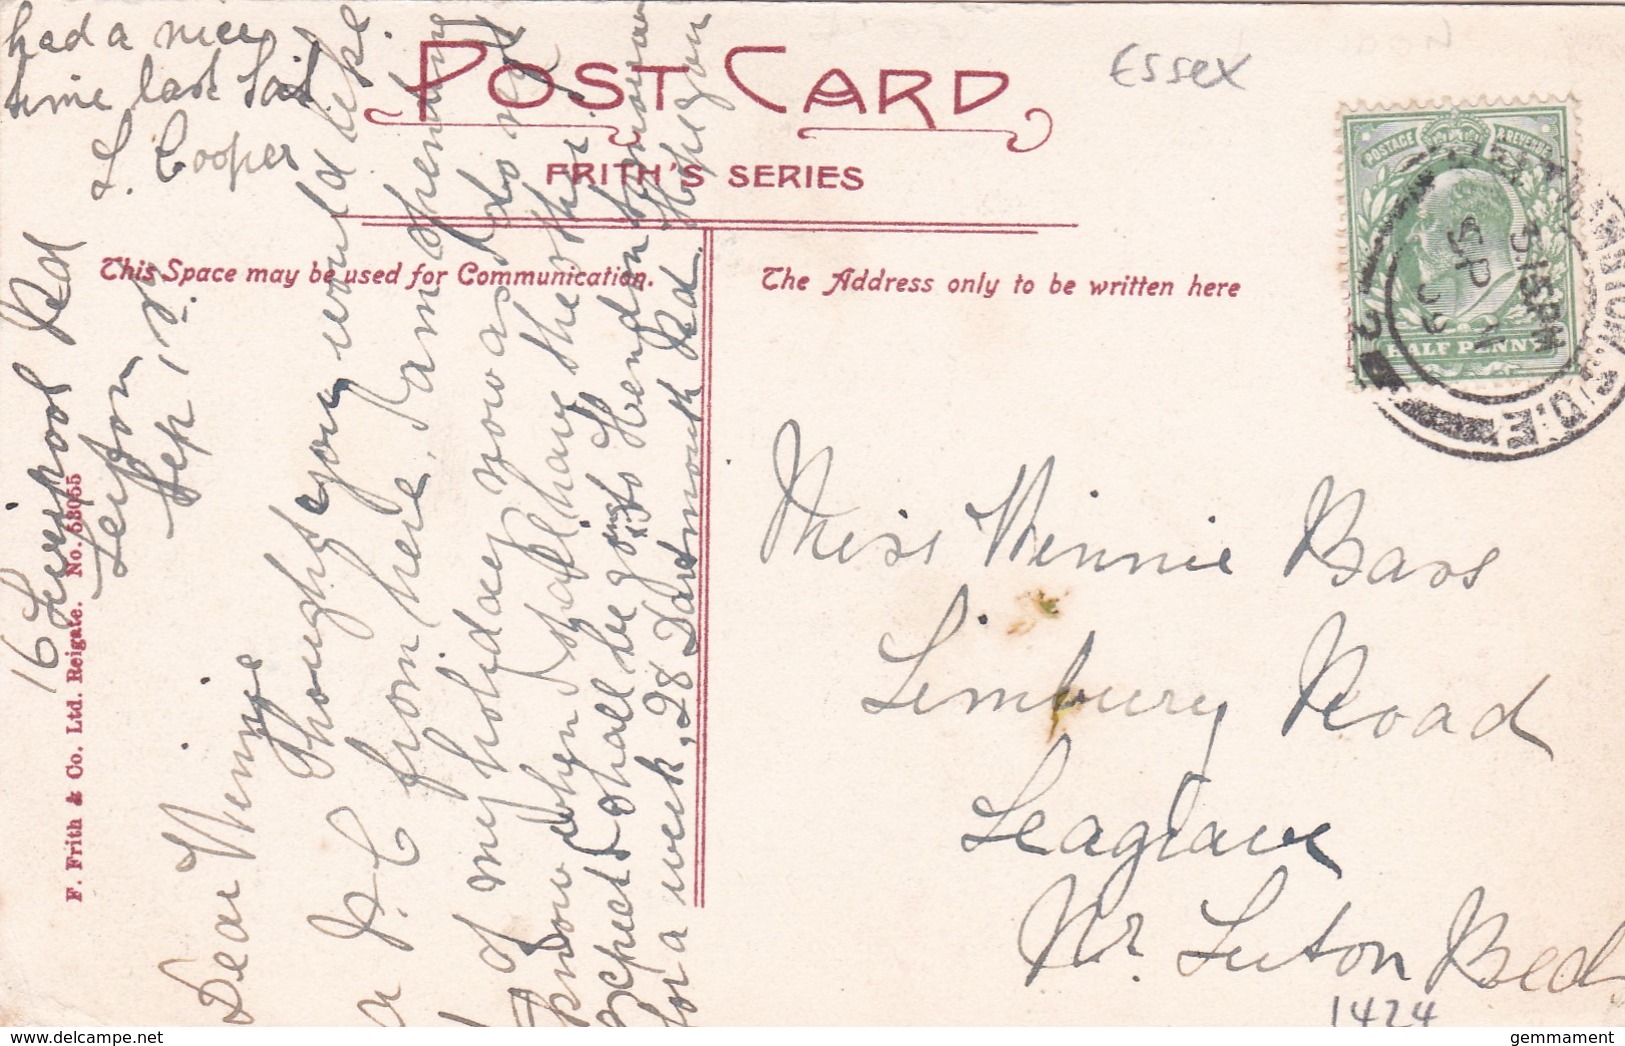 had a nice
time last Sat.
L. Cooper
POST CARD
FRITH'S SERIES
Essex
POSTAGE & REVENUE
HALF PENNY
5.15PM
SP 1
09
S.O.
This Space may be used for Communication.
The Address only to be written here
16 Liverpool Rd
Leyton
Sep 1st
Dear Winnie
Thought you would like
a P.C from here. I am spending
of my holiday now as do not
know when I shall have the other
expect shall be going to Hendon tomorrow
for a week, 28 Dartmouth Rd. Hope you
Miss Winnie Bass
Limbury Road
Leagrave
Nr. Luton Beds
1424
F. Frith & Co. Ltd. Reigate. No. 53055
gemmament